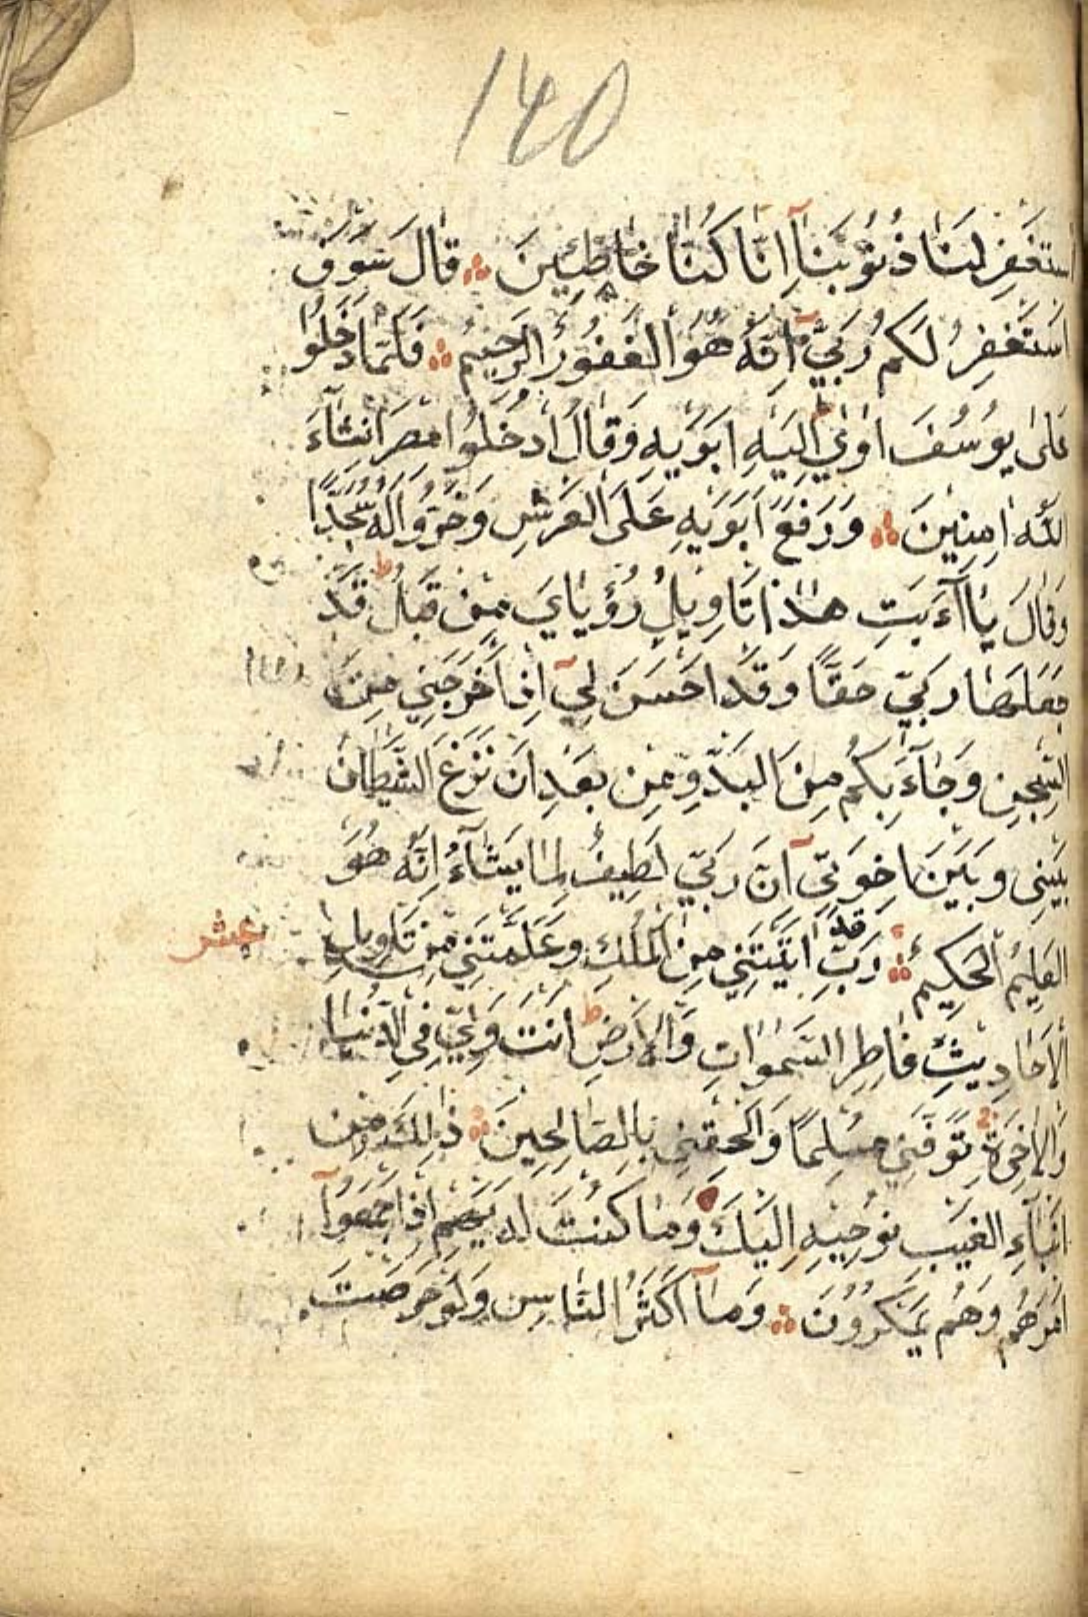 140
استغفر لنا ذنوبنآ انا كنا خاطئين قال سوف
استغفر لكم ربيٓ انه هو الغفور الرحيم فلما دخلوا
على يوسف اوي اليه ابويه وقال ادخلوا مصر انشآء
الله امنين ورفع ابويه على العرش وخروا له سجدا
وقال يا اٰبت هذا تاويل رؤياي من قبل ط قد
جعلها ربي حقا وقد احسن ليٓ اذ اخرجني من
السجن وجآء بكم من البدو من بعد ان نزغ الشيطان
بيني وبين اخوتيٓ ان ربي لطيف لما يشآء انه هو
العليم الحكيم رب قد اتيتني من الملك وعلمتني من تاويل
عشر
الاحاديث فاطر السموات والارض ط انت ولي في الدنيا
والاخرة توفني مسلما والحقني بالصالحين ذلك من
انبآء الغيب نوحيه اليك وما كنت لديهم اذ اجمعوآ
امرهم وهم يمكرون ومآ اكثر الناس ولو حرصت